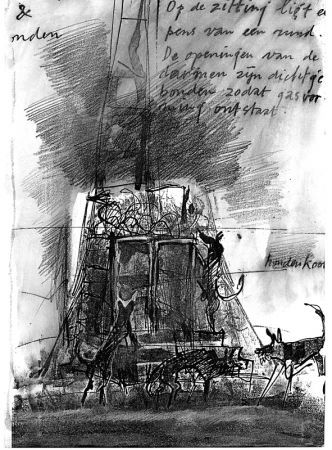 &
onden
Op de zitting ligt e
pens van een rund.
De openingen van de
darmen zijn dichtge
bonden zodat gasvor
ming ontstaat.
hondenkoor